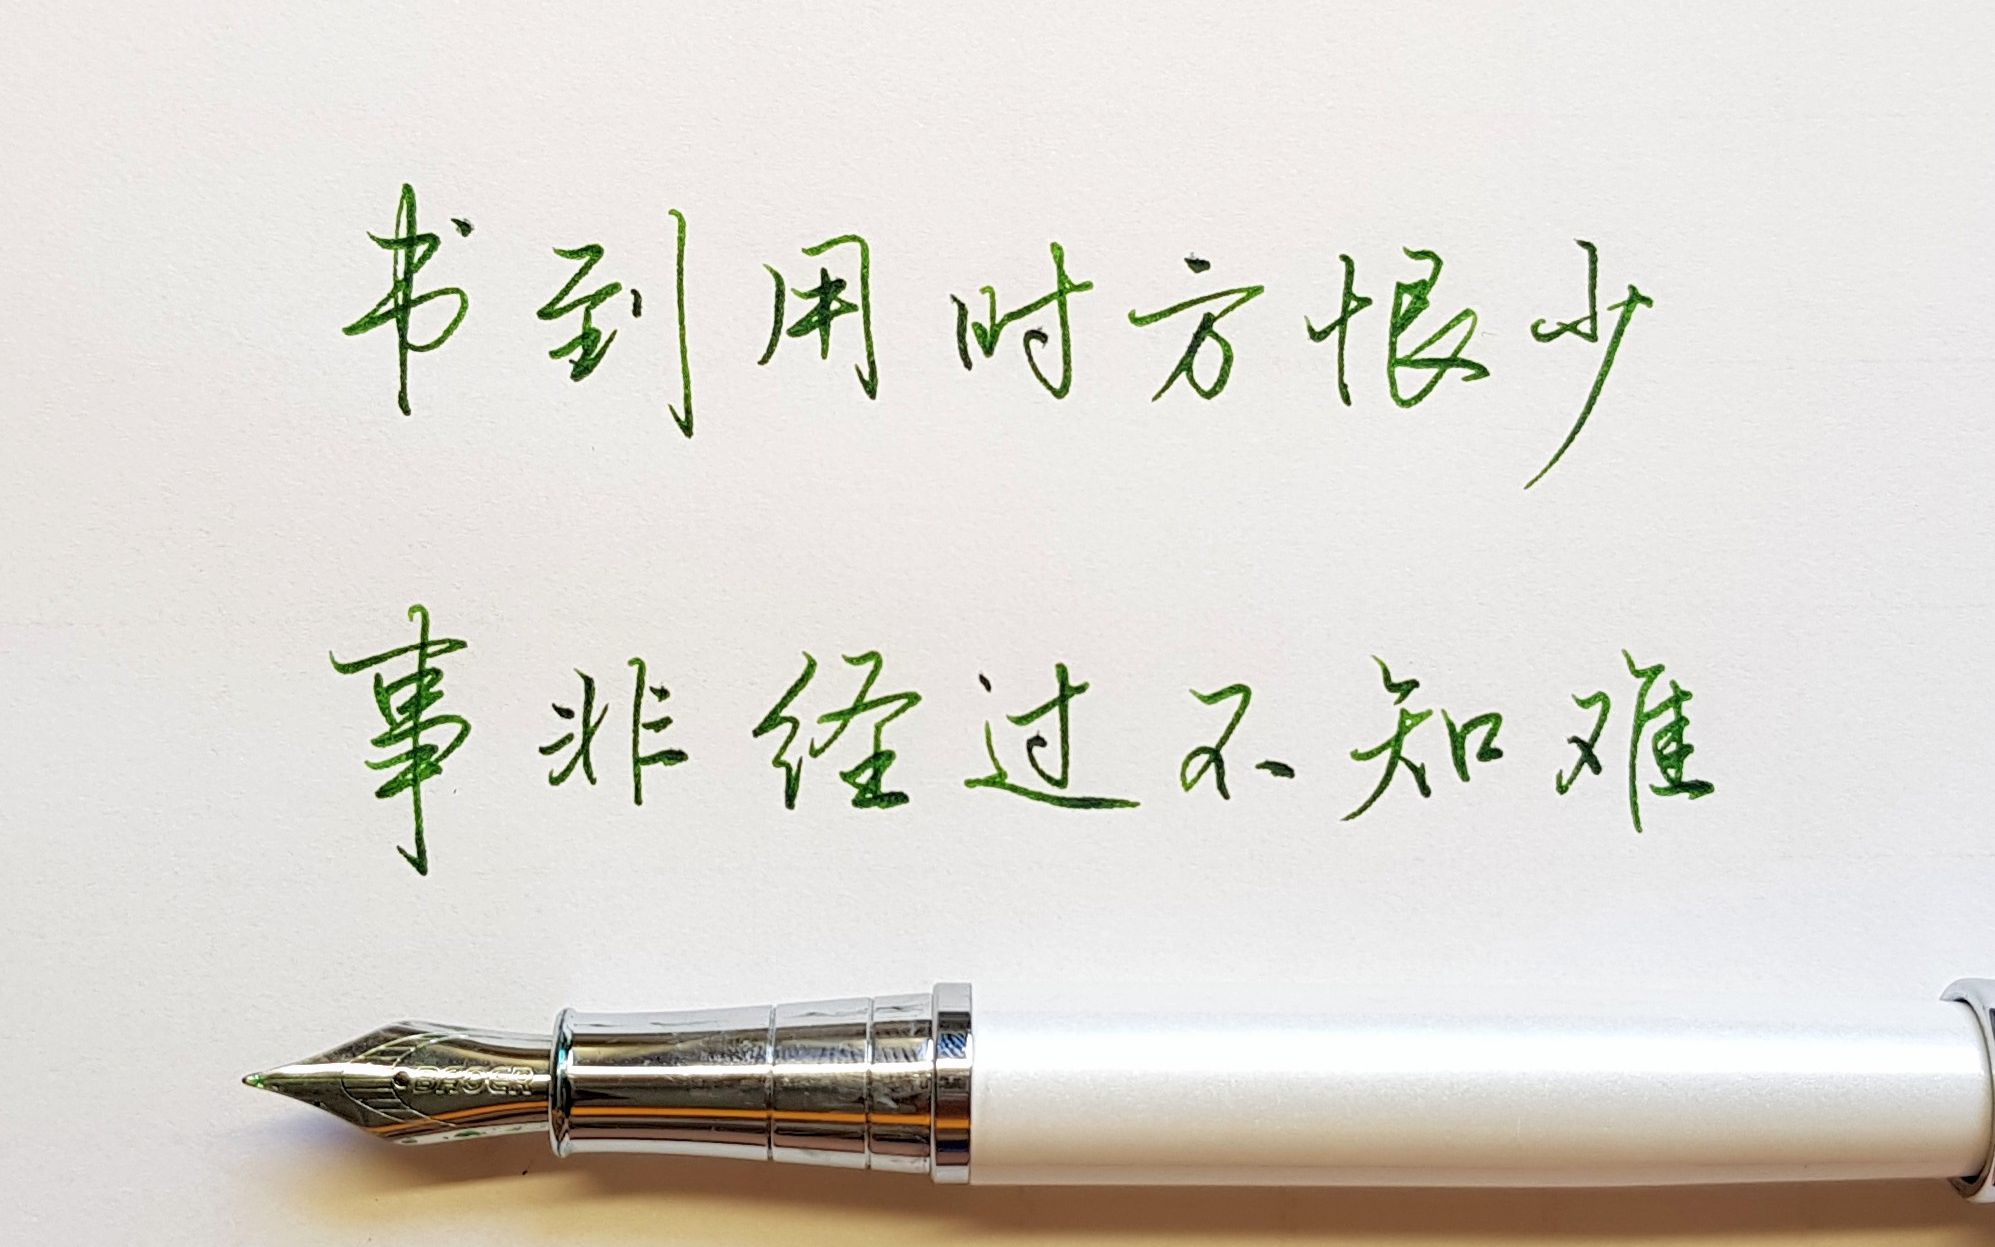 书到用时方恨少
事非经过不知难
BAOER